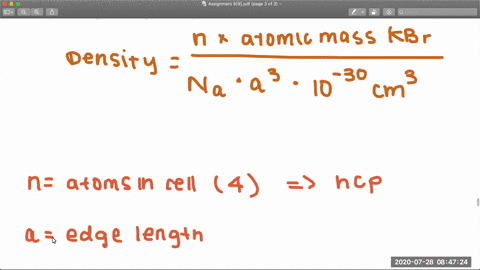 Assignment 9(9).pdf (page 3 of 3)
Density = n × atomic mass KBr / Na · a³ · 10⁻³⁰ cm³
n = atoms in cell (4) => hcp
a = edge length
2020-07-28 08:47:24